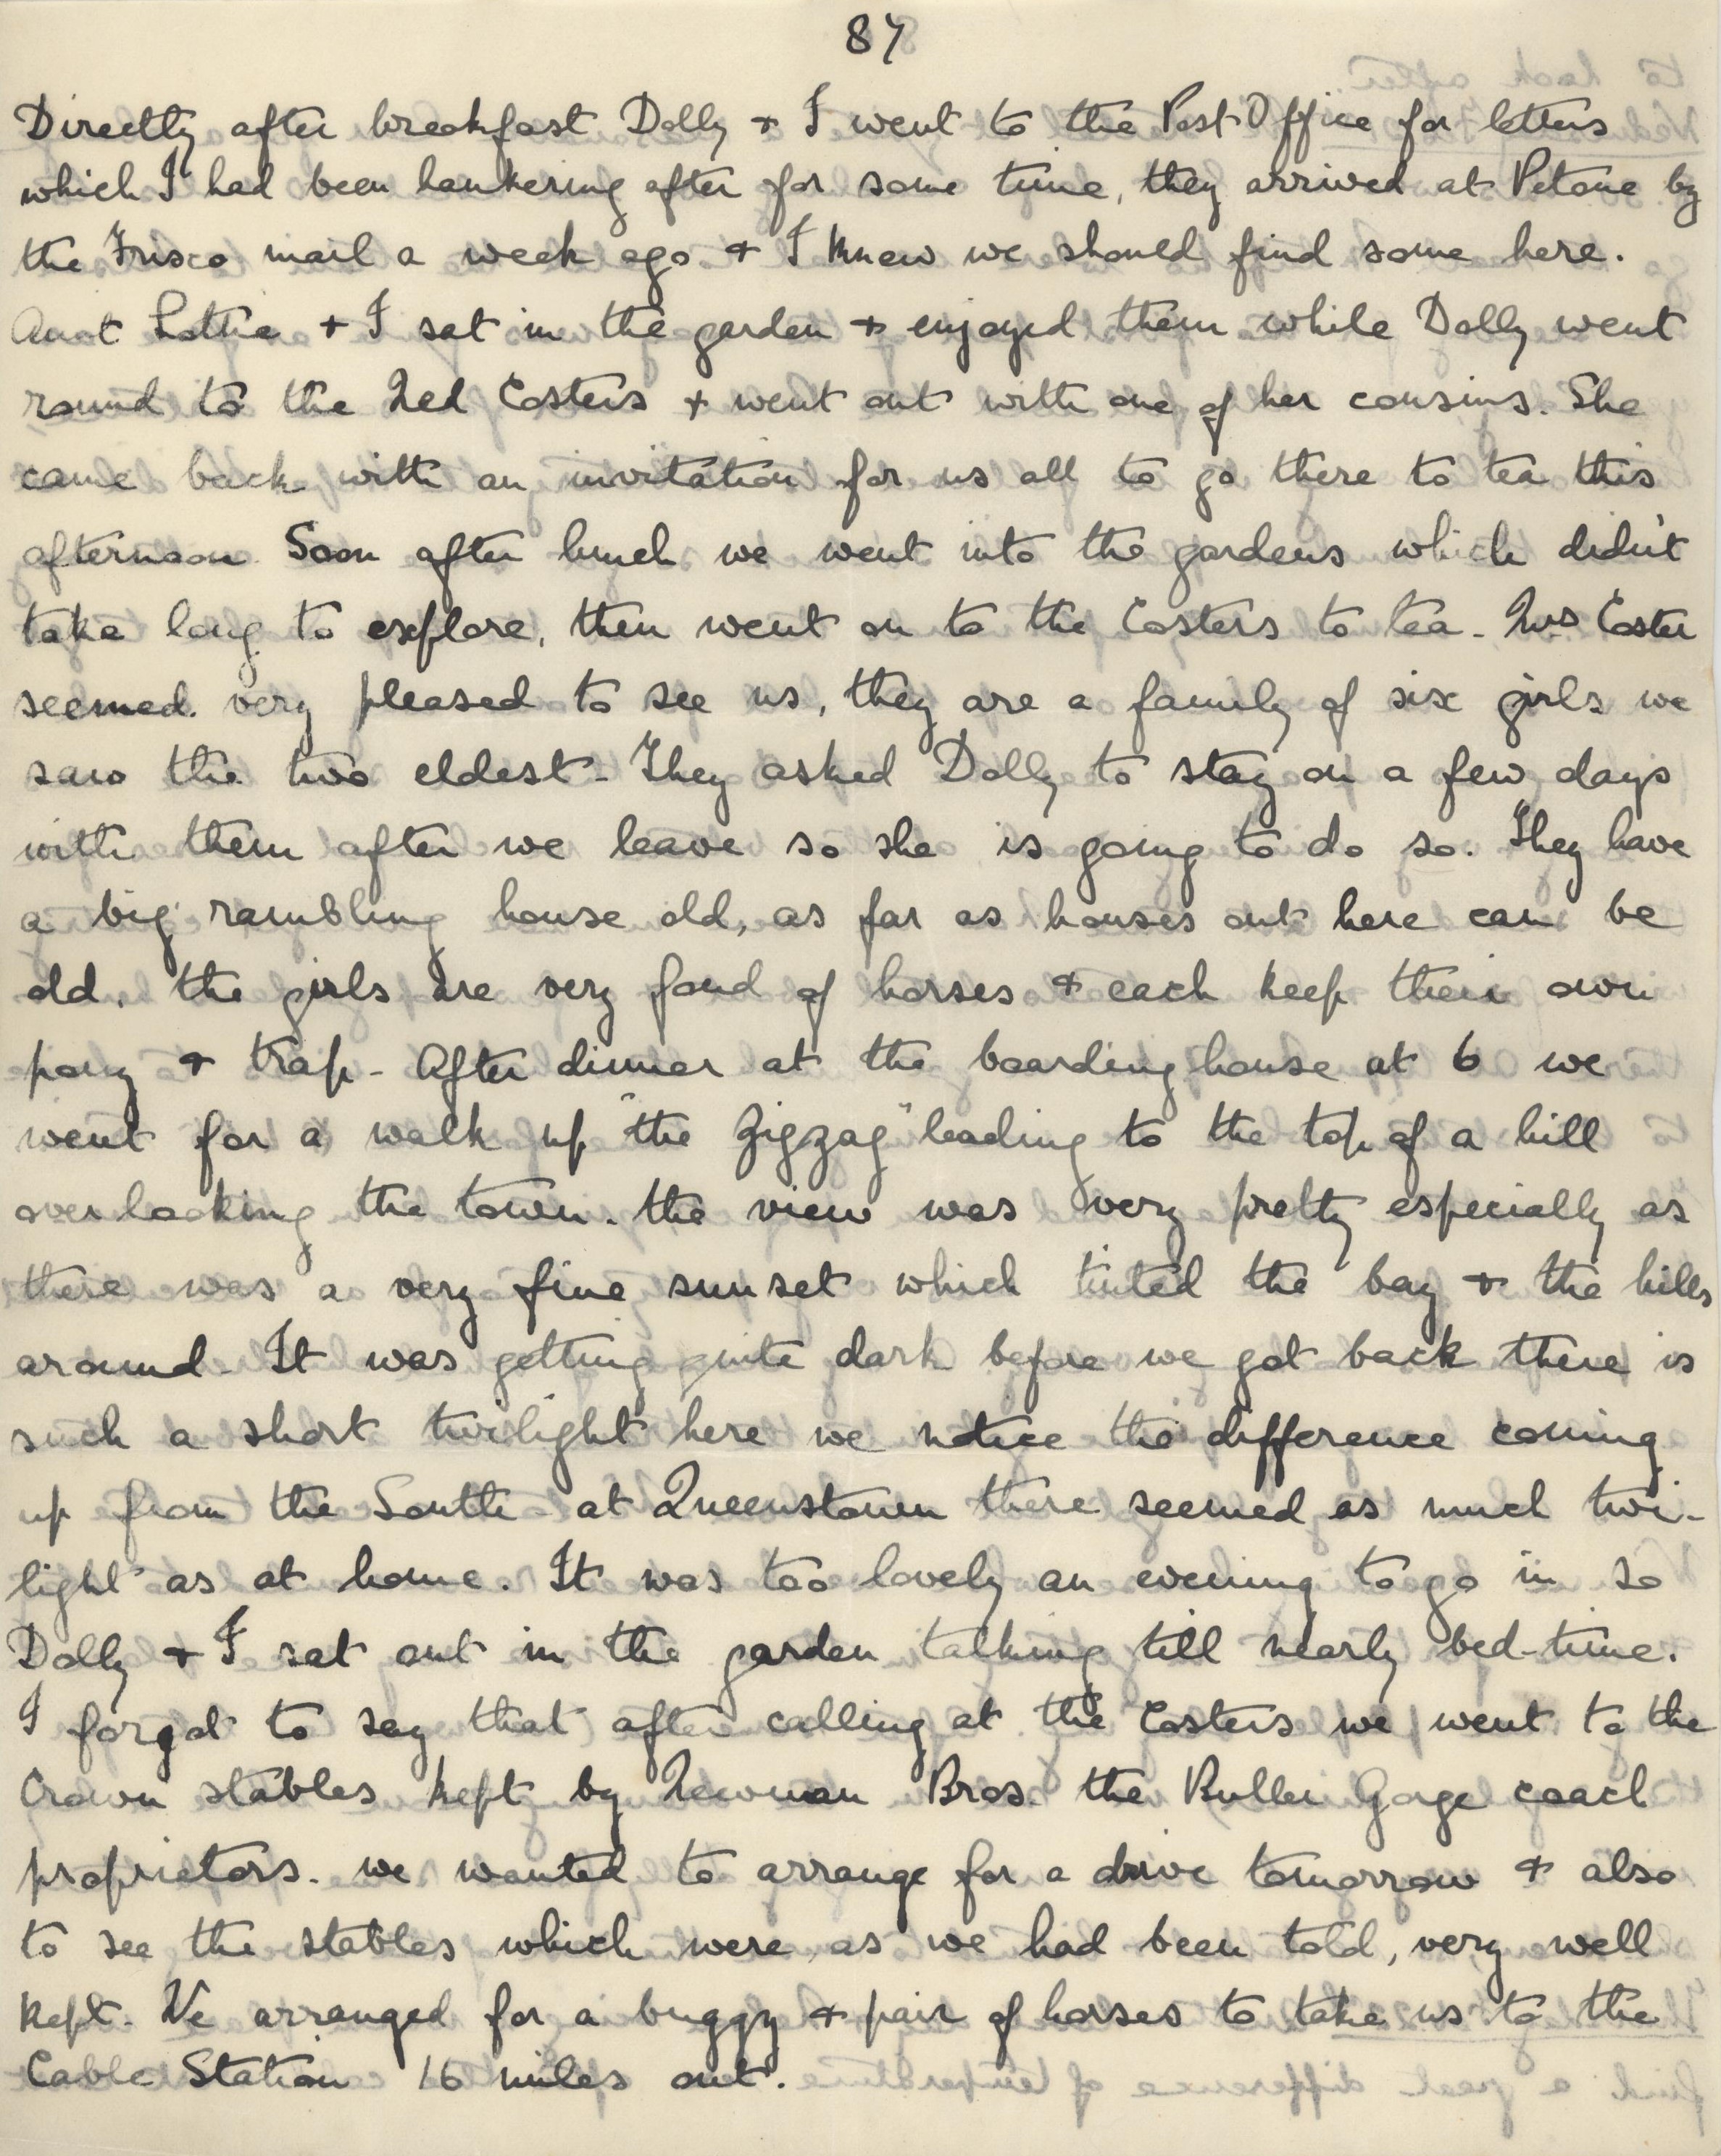 87
Directly after breakfast Dolly & I went to the Post Office for letters
which I had been hankering after for some time, they arrived at Petone by
the Frisco mail a week ago & I knew we should find some here.
Aunt Lottie & I sat in the garden & enjoyed them while Dolly went
round to the Ned Costers & went out with one of her cousins. She
came back with an invitation for us all to go there to tea this
afternoon. Soon after lunch we went into the gardens which didn't
take long to explore, then went on to the Costers to tea. Mrs Coster
seemed very pleased to see us, they are a family of six girls we
saw the two eldest. They asked Dolly to stay on a few days
with them after we leave so she is going to do so. They have
a big rambling house old, as far as houses out here can be
old. the girls are very fond of horses & each keep their own
pony & trap. After dinner at the boarding house at 6 we
went for a walk up "the Zigzag" leading to the top of a hill
overlooking the town. the view was very pretty especially as
there was a very fine sunset which tinted the bay & the hills
around. It was getting quite dark before we got back there is
such a short twilight here we notice the difference coming
up from the South - at Queenstown there seemed as much twi-
light as at home. It was too lovely an evening to go in so
Dolly & I sat out in the garden talking till nearly bed-time.
I forgot to say that after calling at the Costers we went to the
Crown stables kept by Newman Bros. the Buller Gorge coach
proprietors. we wanted to arrange for a drive tomorrow & also
to see the stables which were, as we had been told, very well
kept. We arranged for a buggy & pair of horses to take us to the
Cable Station 16 miles out.